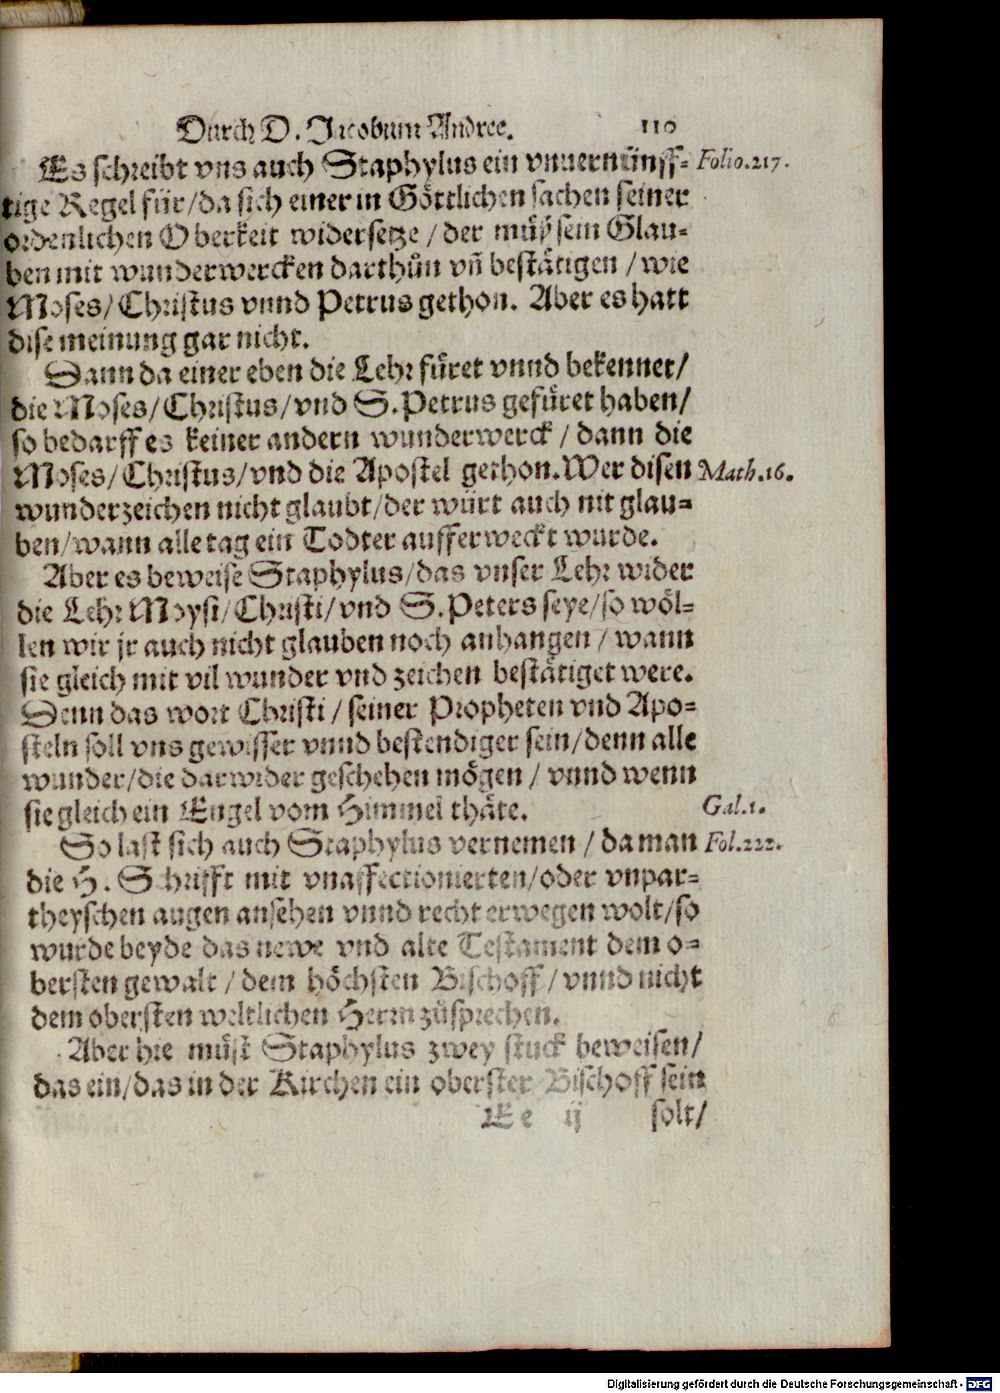 Durch D. Jacobum Andree. 110
Es schreibt vns auch Staphylus ein vnuernünff- Folio.217.
tige Regel für/da sich einer in Göttlichen sachen seiner
ordenlichen Oberkeit widersetze/der müß sein Glau-
ben mit wunderwercken darthůn vñ bestätigen/wie
Moses/Christus vnnd Petrus gethon. Aber es hatt
dise meinung gar nicht.
Dann da einer eben die Lehr füret vnnd bekennet/
die Moses/Christus/vnd S. Petrus gefüret haben/
so bedarff es keiner andern wunderwerck/dann die
Moses/Christus/vnd die Apostel gethon. Wer disen Math.16.
wunderzeichen nicht glaubt/der würt auch nit glau-
ben/wann alle tag ein Todter aufferweckt wurde.
Aber es beweise Staphylus/das vnser Lehr wider
die Lehr Moysi/Christi/vnd S. Peters seye/so wöl-
len wir jr auch nicht glauben noch anhangen/wann
sie gleich mit vil wunder vnd zeichen bestätiget were.
Denn das wort Christi/seiner Propheten vnd Apo-
steln soll vns gewisser vnnd bestendiger sein/denn alle
wunder/die darwider geschehen mögen/vnnd wenn
sie gleich ein Engel vom Himmel thäte. Gal.1.
So last sich auch Staphylus vernemen/da man Fol.222.
die H. Schrifft mit vnaffectionierten/oder vnpar-
theyschen augen ansehen vnnd recht erwegen wolt/so
wurde beyde das newe vnd alte Testament dem o-
bersten gewalt/dem höchsten Bischoff/vnnd nicht
dem obersten weltlichen Herrn zůsprechen.
Aber hie můst Staphylus zwey stuck beweisen/
das ein/das in der Kirchen ein oberster Bischoff sein
Ee ij solt/
Digitalisierung gefördert durch die Deutsche Forschungsgemeinschaft - DFG